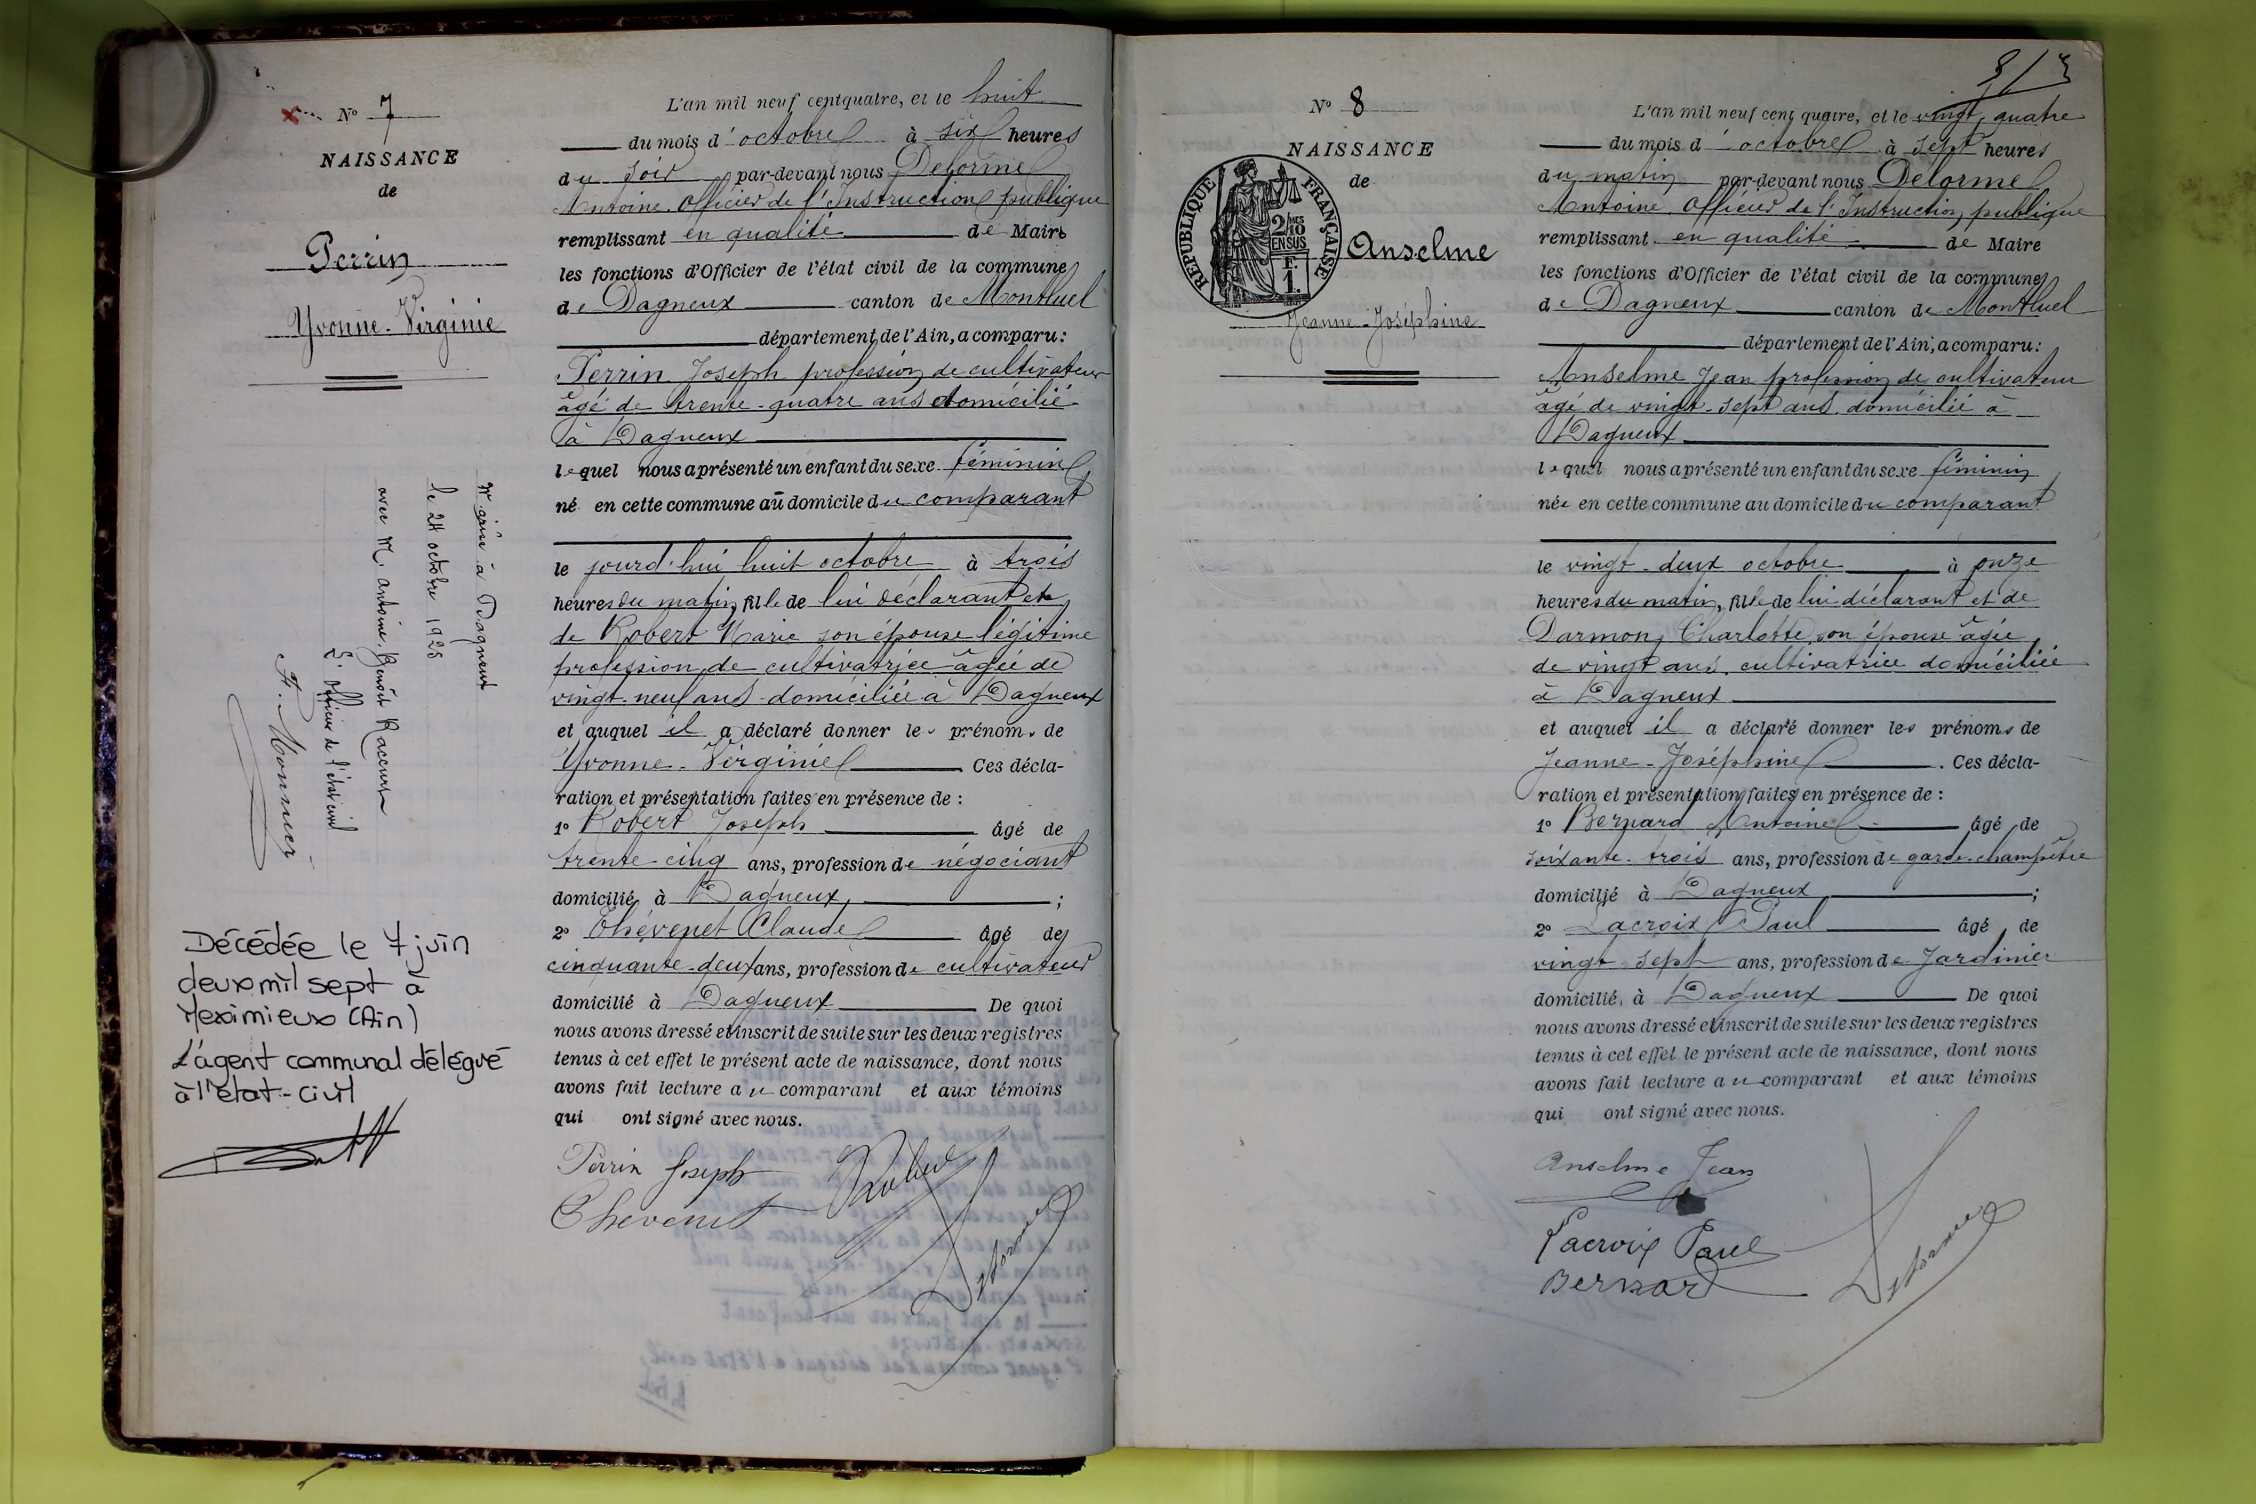 N° 7
NAISSANCE
de
Perrin
Yvonne-Virginie
Mariée à Dagneux
le 24 octobre 1925
avec M. Antoine, Benoît Racurt
L'officier de l'état civil
F. Monnier
Décédée le 7 juin
deux mil sept à
Meximieux (Ain)
L'agent communal délégué
à l'état-civil
L'an mil neuf cent quatre, et le huit
du mois d'octobre à six heures
du soir par-devant nous Delorme
Antoine. Officier de l'Instruction publique
remplissant en qualité de Maire
les fonctions d'Officier de l'état civil de la commune
de Dagneux canton de Montluel
département de l'Ain, a comparu:
Perrin Joseph profession de cultivateur
âgé de trente-quatre ans domicilié
à Dagneux
lequel nous a présenté un enfant du sexe féminin
né en cette commune au domicile du comparant
le jourd'hui huit octobre à trois
heures du matin, fille de lui déclarant et
de Robert Marie son épouse légitime
profession de cultivatrice âgée de
vingt-neuf ans domiciliée à Dagneux
et auquel il a déclaré donner les prénoms de
Yvonne-Virginie Ces décla-
ration et présentation faites en présence de :
1° Robert Joseph âgé de
trente-cinq ans, profession de négociant
domicilié à Dagneux ;
2° Thévenet Claude âgé de
cinquante-deux ans, profession de cultivateur
domicilié à Dagneux De quoi
nous avons dressé et inscrit de suite sur les deux registres
tenus à cet effet le présent acte de naissance, dont nous
avons fait lecture au comparant et aux témoins
qui ont signé avec nous.
Perrin Joseph Robert
Thévenet Delorme
N° 8
NAISSANCE
de
RÉPUBLIQUE FRANÇAISE
2/10 MES
EN SUS
F.
1.
Anselme
Jeanne-Joséphine
L'an mil neuf cent quatre, et le vingt quatre
du mois d'octobre à sept heures
du matin par-devant nous Delorme
Antoine. Officier de l'Instruction publique
remplissant en qualité de Maire
les fonctions d'Officier de l'état civil de la commune
de Dagneux canton de Montluel
département de l'Ain, a comparu:
Anselme Jean profession de cultivateur
âgé de vingt-sept ans domicilié à
Dagneux
lequel nous a présenté un enfant du sexe féminin
née en cette commune au domicile du comparant
le vingt-deux octobre à onze
heures du matin, fille de lui déclarant et de
Darmon Charlotte son épouse âgée
de vingt ans, cultivatrice domiciliée
à Dagneux
et auquel il a déclaré donner les prénoms de
Jeanne-Joséphine . Ces décla-
ration et présentation faites en présence de :
1° Bernard Antoine âgé de
soixante-trois ans, profession de garde-champêtre
domicilié à Dagneux ;
2° Lacroix Paul âgé de
vingt sept ans, profession de Jardinier
domicilié à Dagneux De quoi
nous avons dressé et inscrit de suite sur les deux registres
tenus à cet effet le présent acte de naissance, dont nous
avons fait lecture au comparant et aux témoins
qui ont signé avec nous.
Anselme Jean
Lacroix Paul
Bernard Delorme